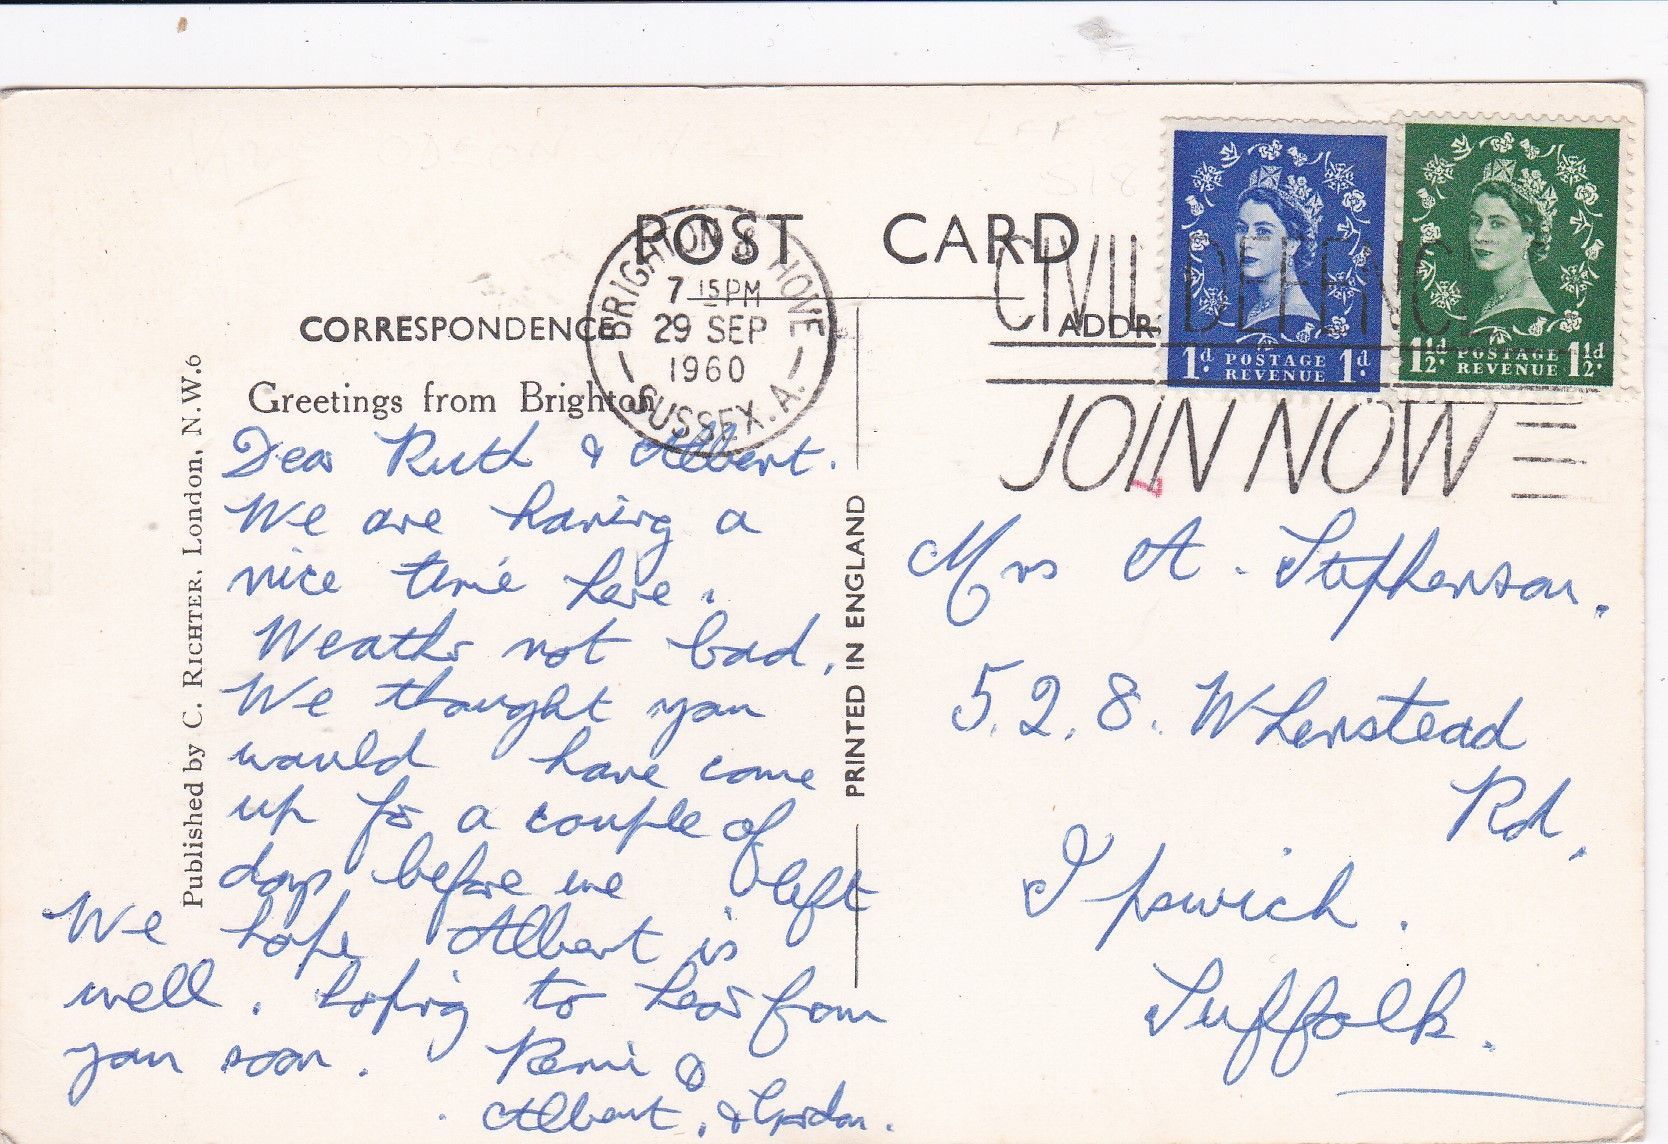 POST CARD
CORRESPONDENCE
ADDR
Greetings from Brighton
BRIGHTON & HOVE
7 15PM
29 SEP
1960
SUSSEX. A.
CIVIL DEFENCE
JOIN NOW
1d. POSTAGE REVENUE 1d.
1½d. POSTAGE REVENUE 1½d.
Published by C. RICHTER, London, N.W.6
PRINTED IN ENGLAND
Dear Ruth & Albert.
We are having a
nice time here.
Weather not bad.
We thought you
would have come
up for a couple of
days before we left
We hope Albert is
well. hoping to hear from
you soon. &
Albert, & Gordon.
Mrs A. Stephenson.
5.2.8. Wherstead
Rd.
Ipswich.
Suffolk.